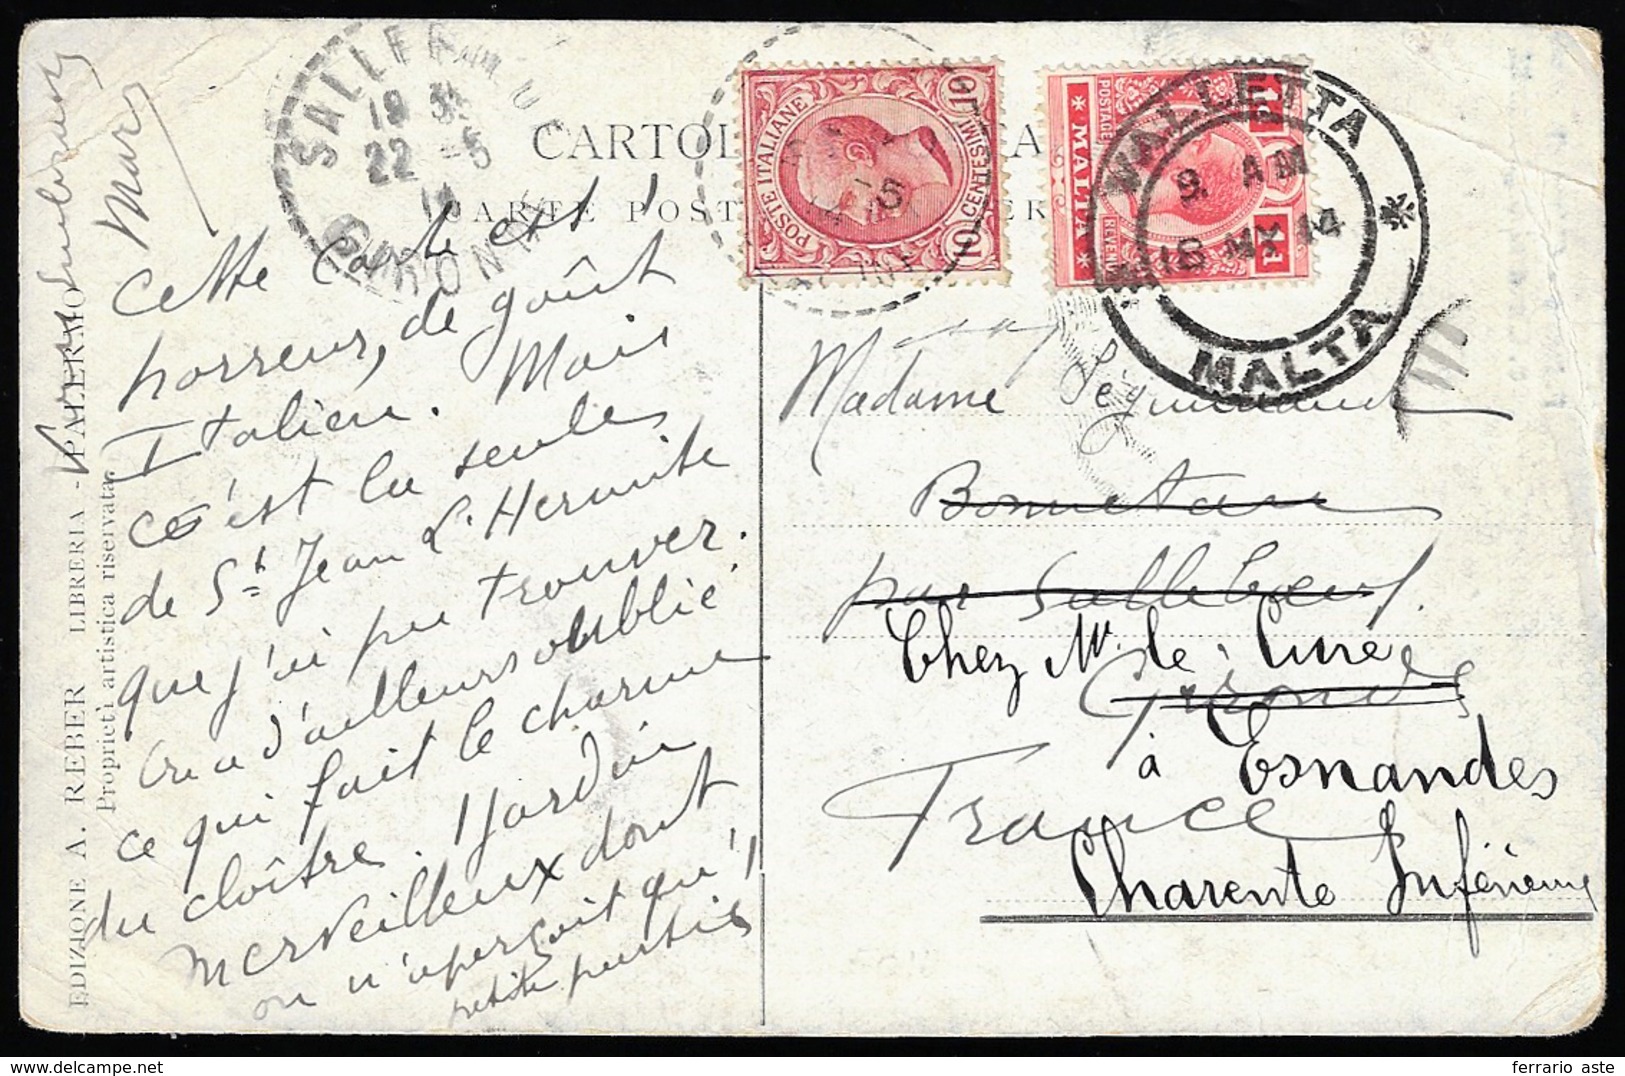 CARTOL
CARTE POST
SALLEBŒUF
19 35
22 -5
14
GIRONDE
POSTE ITALIANE
10 CENTESIMI 10
1d
POSTAGE
MALTA
REVENUE
1d
VALLETTA
9 AM
18 MY 14
MALTA
Cette carte est
horreur, de goût
Italien. Mais
c'est la seule
de St Jean L'Hermite
que j'ai pu trouver.
On a d'ailleurs oublié
ce qui fait le charme
du cloître. Jardin
merveilleux dont
on n'aperçoit qu'1
petite
EDIZIONE A. REBER LIBRERIA - PALERMO
Proprietà artistica riservata
Madame
Bonnetan
par Sallebœuf.
Chez Mr. le Curé
Gironde
à Esnandes
France
Charente Inférieure
ferrario aste